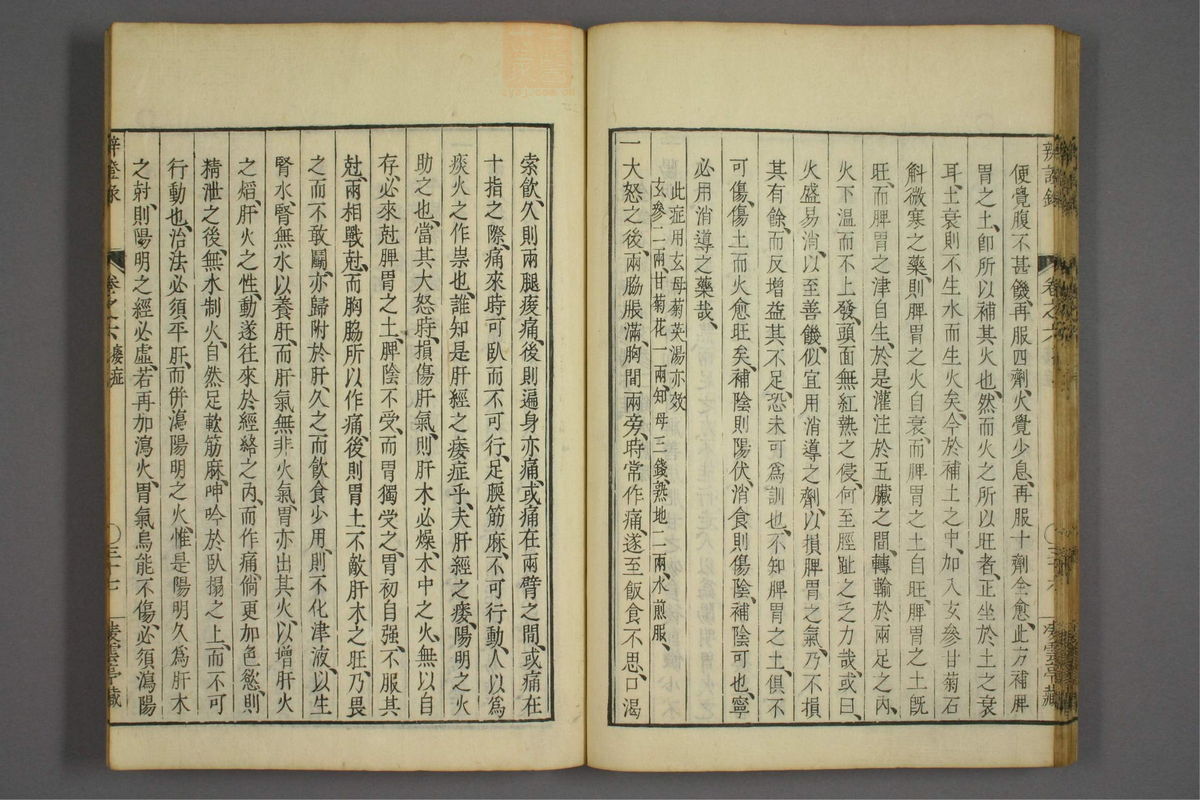 便覺腹不甚饑、再服四劑、火覺少息、再服十劑全愈、此方補脾
胃之土、卽所以補其火也、然而火之所以旺者、正坐於土之衰
耳、土衰則不生水而生火矣、今於補土之中、加入玄參甘菊石
斛微寒之藥、則脾胃之火自衰、而脾胃之土自旺、脾胃之土旣
旺、而脾胃之津自生、於是灌注於五臟之間、轉輸於兩足之內、
火下溫而不上發、頭面無紅熱之侵、何至脛趾之乏力哉、或曰、
火盛易消、以至善饑、似宜用消導之劑、以損脾胃之氣、乃不損
其有餘、而反增益其不足、恐未可爲訓也、不知脾胃之土、俱不
可傷、傷土而火愈旺矣、補陰則陽伏、消食則傷陰、補陰可也、寧
必用消導之藥哉、
此症用玄母菊英湯亦效
玄參二兩、甘菊花一兩、知母三錢、熟地二兩、水煎服、
一大怒之後、兩脇脹滿、胸間兩旁、時常作痛、遂至飯食不思、口渴
索飮、久則兩腿痠痛、後則遍身亦痛、或痛在兩臂之間、或痛在
十指之際、痛來時可臥而不可行、足膝筋麻、不可行動、人以爲
痰火之作祟也、誰知是肝經之痿症乎、夫肝經之痿、陽明之火
助之也、當其大怒時、損傷肝氣、則肝木必燥、木中之火、無以自
存、必來尅脾胃之土、脾陰不受、而胃獨受之、胃初自强、不服其
尅、兩相戰尅、而胸脇所以作痛、後則胃土不敵肝木之旺、乃畏
之而不敢鬭、亦歸附於肝、久之而飮食少用、則不化津液、以生
腎水、腎無水以養肝、而肝氣無非火氣、胃亦出其火、以增肝火
之焰、肝火之性、動遂往來於經絡之內、而作痛、倘更加色慾、則
精泄之後、無水制火、自然足軟筋麻、呻吟於臥榻之上、而不可
行動也、治法必須平肝、而併瀉陽明之火、惟是陽明久爲肝木
之尅、則陽明之經必虛、若再加瀉火、胃氣烏能不傷、必須瀉陽
辨證錄 卷之六 痿症 三十七 凌雲亭藏